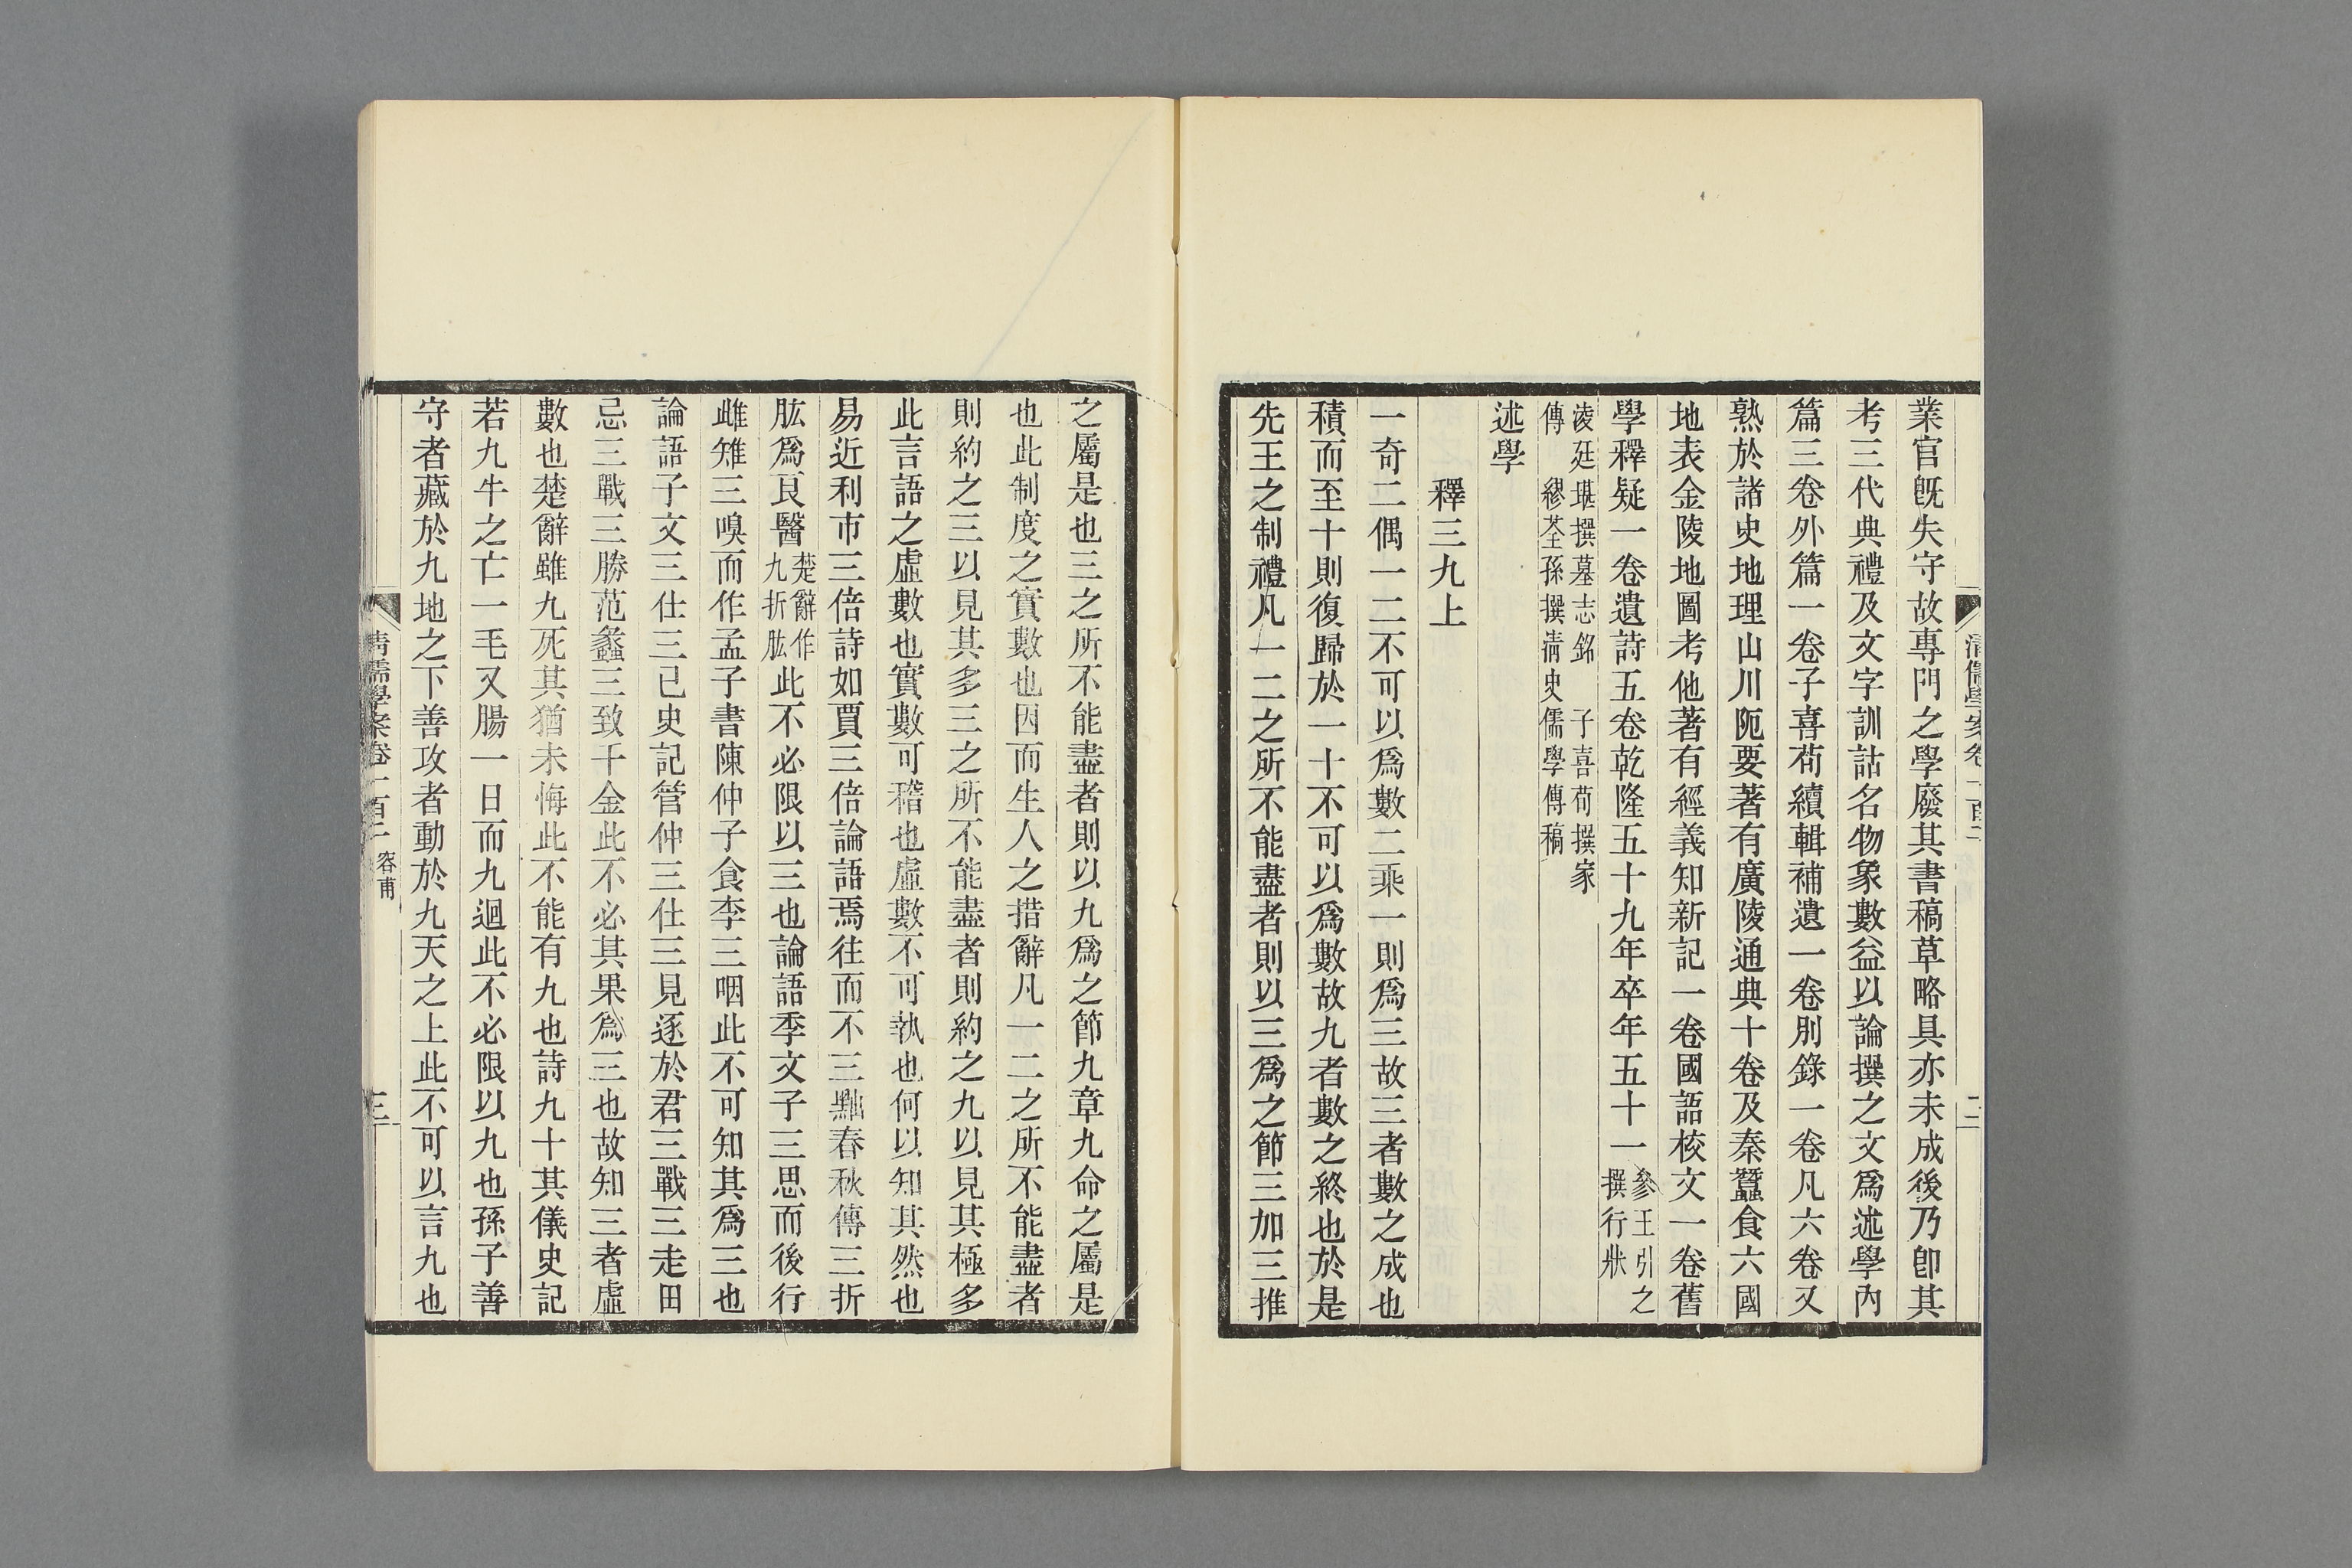 業官旣失守故專門之學廢其書稿草略具亦未成後乃卽其
考三代典禮及文字訓詁名物象數益以論撰之文爲述學內
篇三卷外篇一卷子喜荀續輯補遺一卷別錄一卷凡六卷又
熟於諸史地理山川阨要著有廣陵通典十卷及秦蠶食六國
地表金陵地圖考他著有經義知新記一卷國語校文一卷舊
學釋疑一卷遺詩五卷乾隆五十九年卒年五十一參王引之
撰行狀
淩廷堪撰墓志銘　子喜荀撰家
傳　繆荃孫撰淸史儒學傳稿
述學
釋三九上
一奇二偶一二不可以爲數二乘一則爲三故三者數之成也
積而至十則復歸於一十不可以爲數故九者數之終也於是
先王之制禮凡一二之所不能盡者則以三爲之節三加三推
之屬是也三之所不能盡者則以九爲之節九章九命之屬是
也此制度之實數也因而生人之措辭凡一二之所不能盡者
則約之三以見其多三之所不能盡者則約之九以見其極多
此言語之虛數也實數可稽也虛數不可執也何以知其然也
易近利市三倍詩如賈三倍論語焉往而不三黜春秋傳三折
肱爲良醫楚辭作
九折肱此不必限以三也論語季文子三思而後行
雌雉三嗅而作孟子書陳仲子食李三咽此不可知其爲三也
論語子文三仕三已史記管仲三仕三見逐於君三戰三走田
忌三戰三勝范蠡三致千金此不必其果爲三也故知三者虛
數也楚辭雖九死其猶未悔此不能有九也詩九十其儀史記
若九牛之亡一毛又腸一日而九迴此不必限以九也孫子善
守者藏於九地之下善攻者動於九天之上此不可以言九也
清儒學案卷一百二　容甫
三